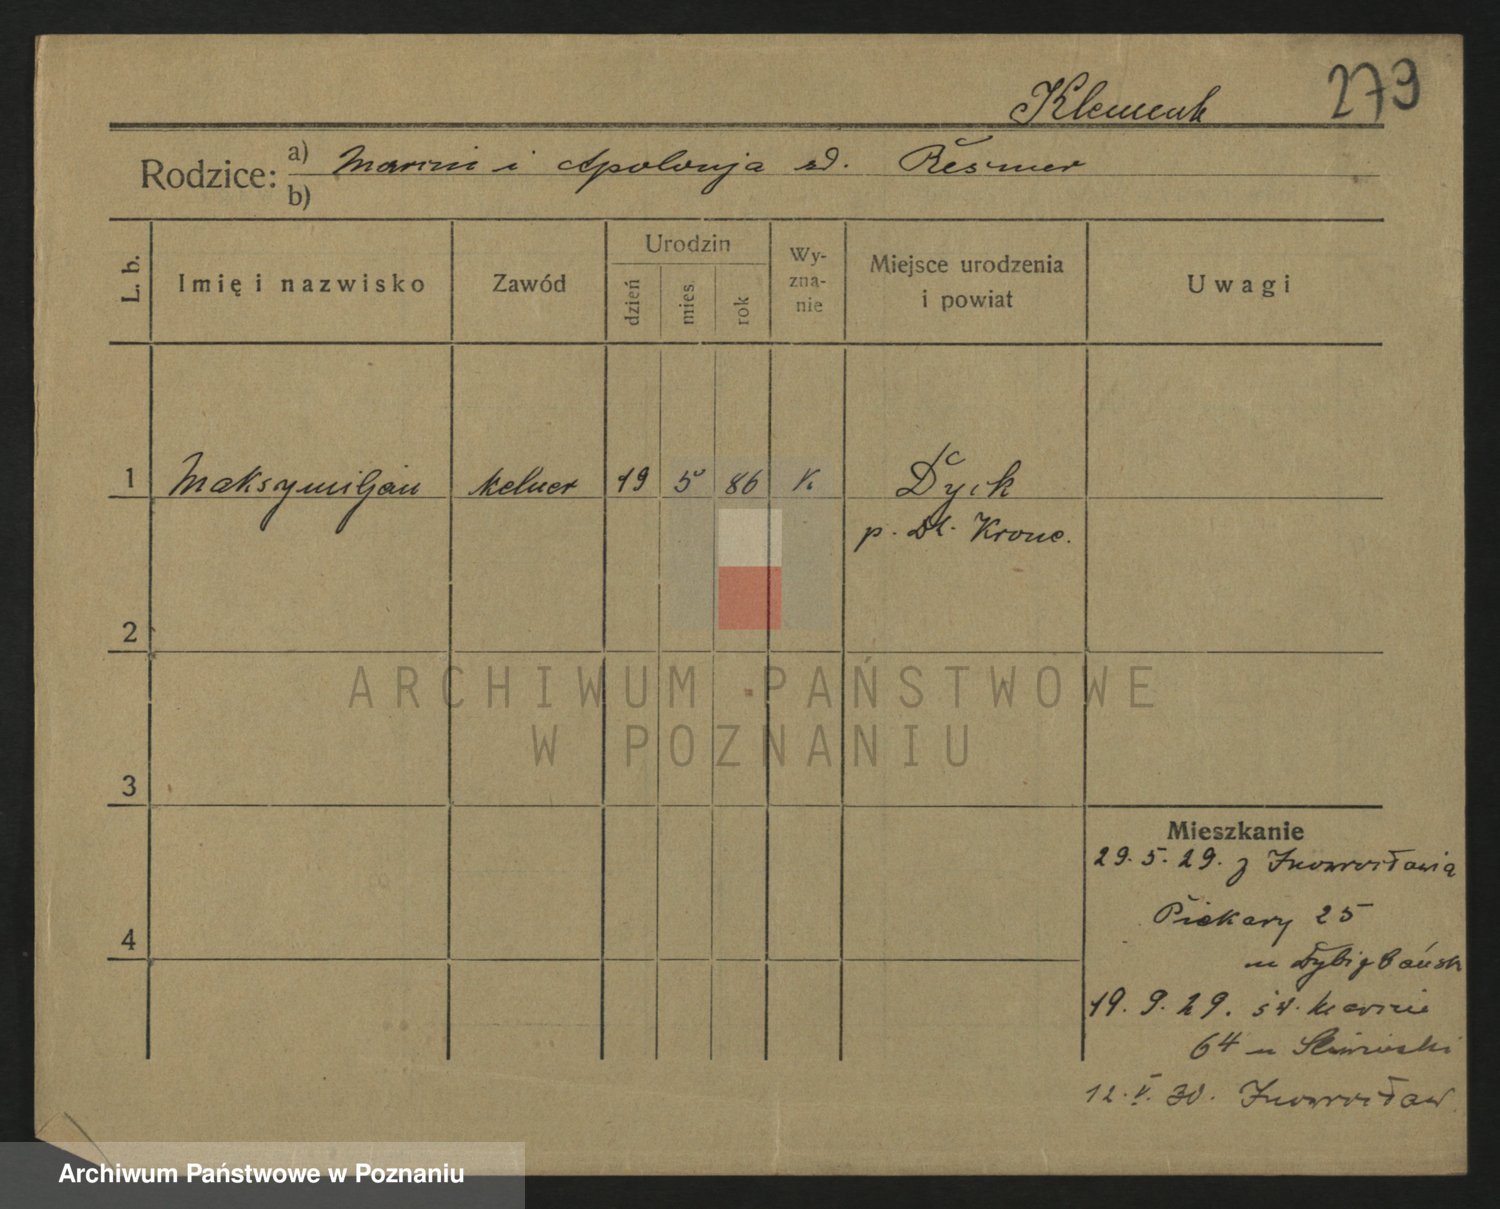 279
Klement
Rodzice: a) Marcin i Apolonja zd. Resmer
b)
L. b.
Imię i nazwisko
Zawód
Urodzin
dzień
mies.
rok
Wy-
zna-
nie
Miejsce urodzenia
i powiat
Uwagi
1 Maksymiljan kelner 19 5 86 k. Dyck
p. Dt. Krone.
2
3
4
Mieszkanie
29. 5. 29. z Inowrocławia
Piekary 25
u
19. 9. 29. św. Marcin
64 u
12. V. 30. Inowrocław
ARCHIWUM PAŃSTWOWE
W POZNANIU
Archiwum Państwowe w Poznaniu